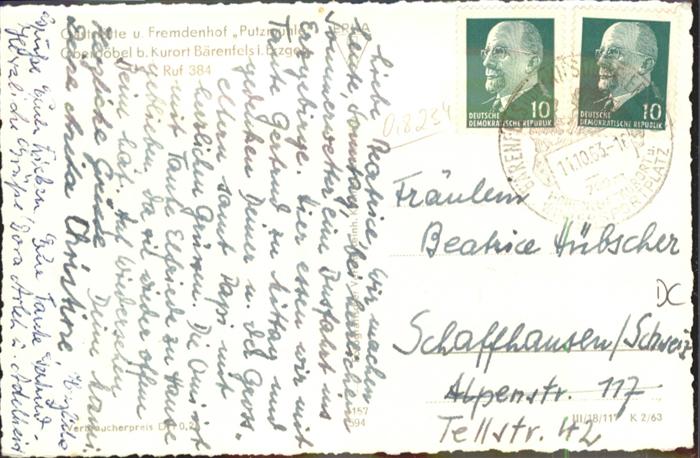 Gaststätte u. Fremdenhof „Putzmühle"
Oberpöbel b. Kurort Bärenfels i. Erzgeb.
Ruf 384
Liebe Beatrice, wir machen
heute, Sonntag, bei herrlichem
Sommerwetter eine Ausfahrt ins
Erzgebirge. Hier essen wir mit
Tante Gertrud zu Mittag und
gedenken Deiner u. der Gross-
eltern samt Papi mit
herzlichen Grüssen. Die Omi ist
mit Tante Elfriede zu Hause
geblieben, da sie wieder offene
Bein hat. Auf Wiedersehen
herzliche Grüsse Deine Mami.
Christiane
Herzliche
Grüsse
Tante Gertrud
Herzliche Grüsse Dora
Verbraucherpreis DM 0,20
157
594
III/18/117 K 2/63
DEUTSCHE
DEMOKRATISCHE REPUBLIK
10
DEUTSCHE
DEMOKRATISCHE REPUBLIK
10
BÄRENFELS
11.10.63
KURORT u.
Fräulein
Beatrice Hübscher
DC
Schaffhausen/Schweiz
Alpenstr. 117
Tellstr. 42